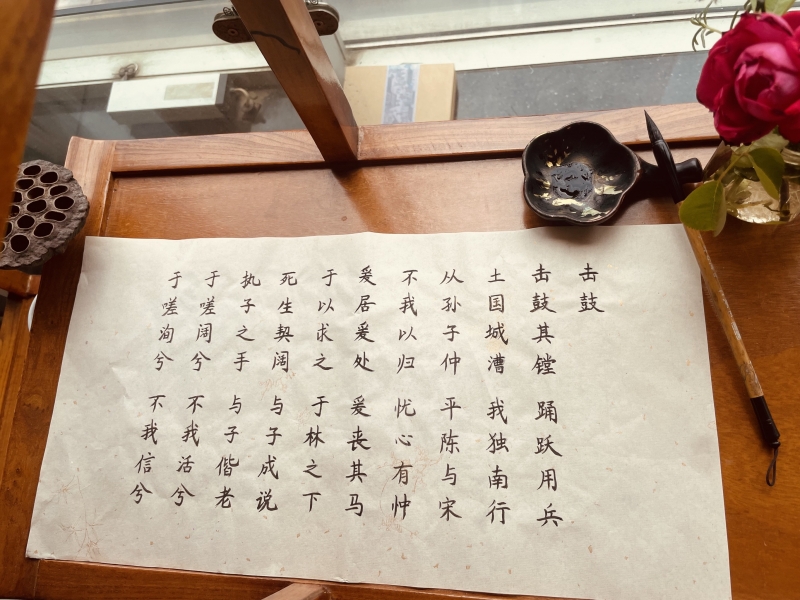 击鼓
击鼓其镗 踊跃用兵
土国城漕 我独南行
从孙子仲 平陈与宋
不我以归 忧心有忡
爰居爰处 爰丧其马
于以求之 于林之下
死生契阔 与子成说
执子之手 与子偕老
于嗟阔兮 不我活兮
于嗟洵兮 不我信兮